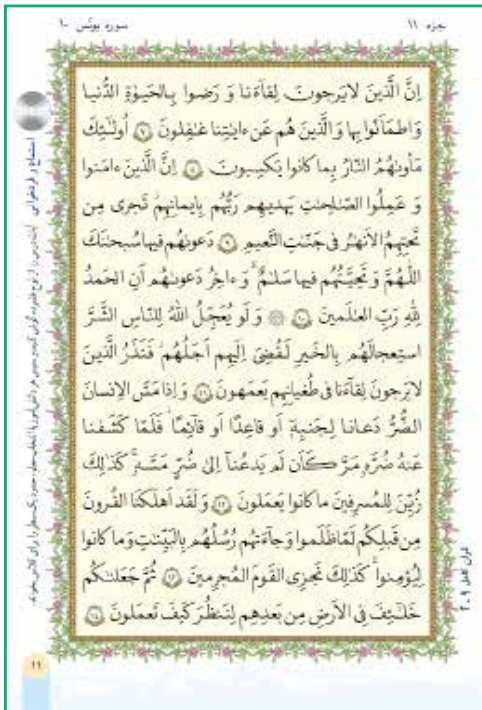 جزء ۱۱
سوره یونس ۱۰
اِنَّ الَّذینَ لایَرجونَ لِقآءَنا وَ رَضوا بِالحَیوٰةِ الدُّنیا
وَ اطمَاَنّوا بِها وَ الَّذینَ هُم عَن ءایٰتِنا غٰفِلونَ ۷ اُولٰـئِكَ
مَأویٰهُمُ النّارُ بِما کانوا یَکسِبونَ ۸ اِنَّ الَّذینَ ءامَنوا
وَ عَمِلُوا الصّٰلِحٰتِ یَهدیهِم رَبُّهُم بِایمانِهِم تَجری مِن
تَحتِهِمُ الاَنهٰرُ فی جَنّٰتِ النَّعیمِ ۹ دَعوٰهُم فیها سُبحٰنَكَ
اللّٰهُمَّ وَ تَحِیَّتُهُم فیها سَلٰمٌ وَ ءاخِرُ دَعوٰهُم اَنِ الحَمدُ
لِلّٰهِ رَبِّ العٰلَمینَ ۱۰ وَ لَو یُعَجِّلُ اللّٰهُ لِلنّاسِ الشَّرَّ
استِعجالَهُم بِالخَیرِ لَقُضِیَ اِلَیهِم اَجَلُهُم فَنَذَرُ الَّذینَ
لایَرجونَ لِقآءَنا فی طُغیانِهِم یَعمَهونَ ۱۱ وَ اِذا مَسَّ الاِنسانَ
الضُّرُّ دَعانا لِجَنبِهٖ اَو قاعِدًا اَو قآئِمًا فَلَمّا کَشَفنا
عَنهُ ضُرَّهٗ مَرَّ کَاَن لَم یَدعُنآ اِلیٰ ضُرٍّ مَسَّهٗ کَذٰلِكَ
زُیِّنَ لِلمُسرِفینَ ما کانوا یَعمَلونَ ۱۲ وَ لَقَد اَهلَکنَا القُرونَ
مِن قَبلِکُم لَمّا ظَلَموا وَ جآءَتهُم رُسُلُهُم بِالبَیِّنٰتِ وَ ما کانوا
لِیُؤمِنوا کَذٰلِكَ نَجزِی القَومَ المُجرِمینَ ۱۳ ثُمَّ جَعَلنٰکُم
خَلٰـئِفَ فِی الاَرضِ مِن بَعدِهِم لِنَنظُرَ کَیفَ تَعمَلونَ ۱۴
استماع و فردخوانی
قرآن کامل ۲۰۹
۱۱